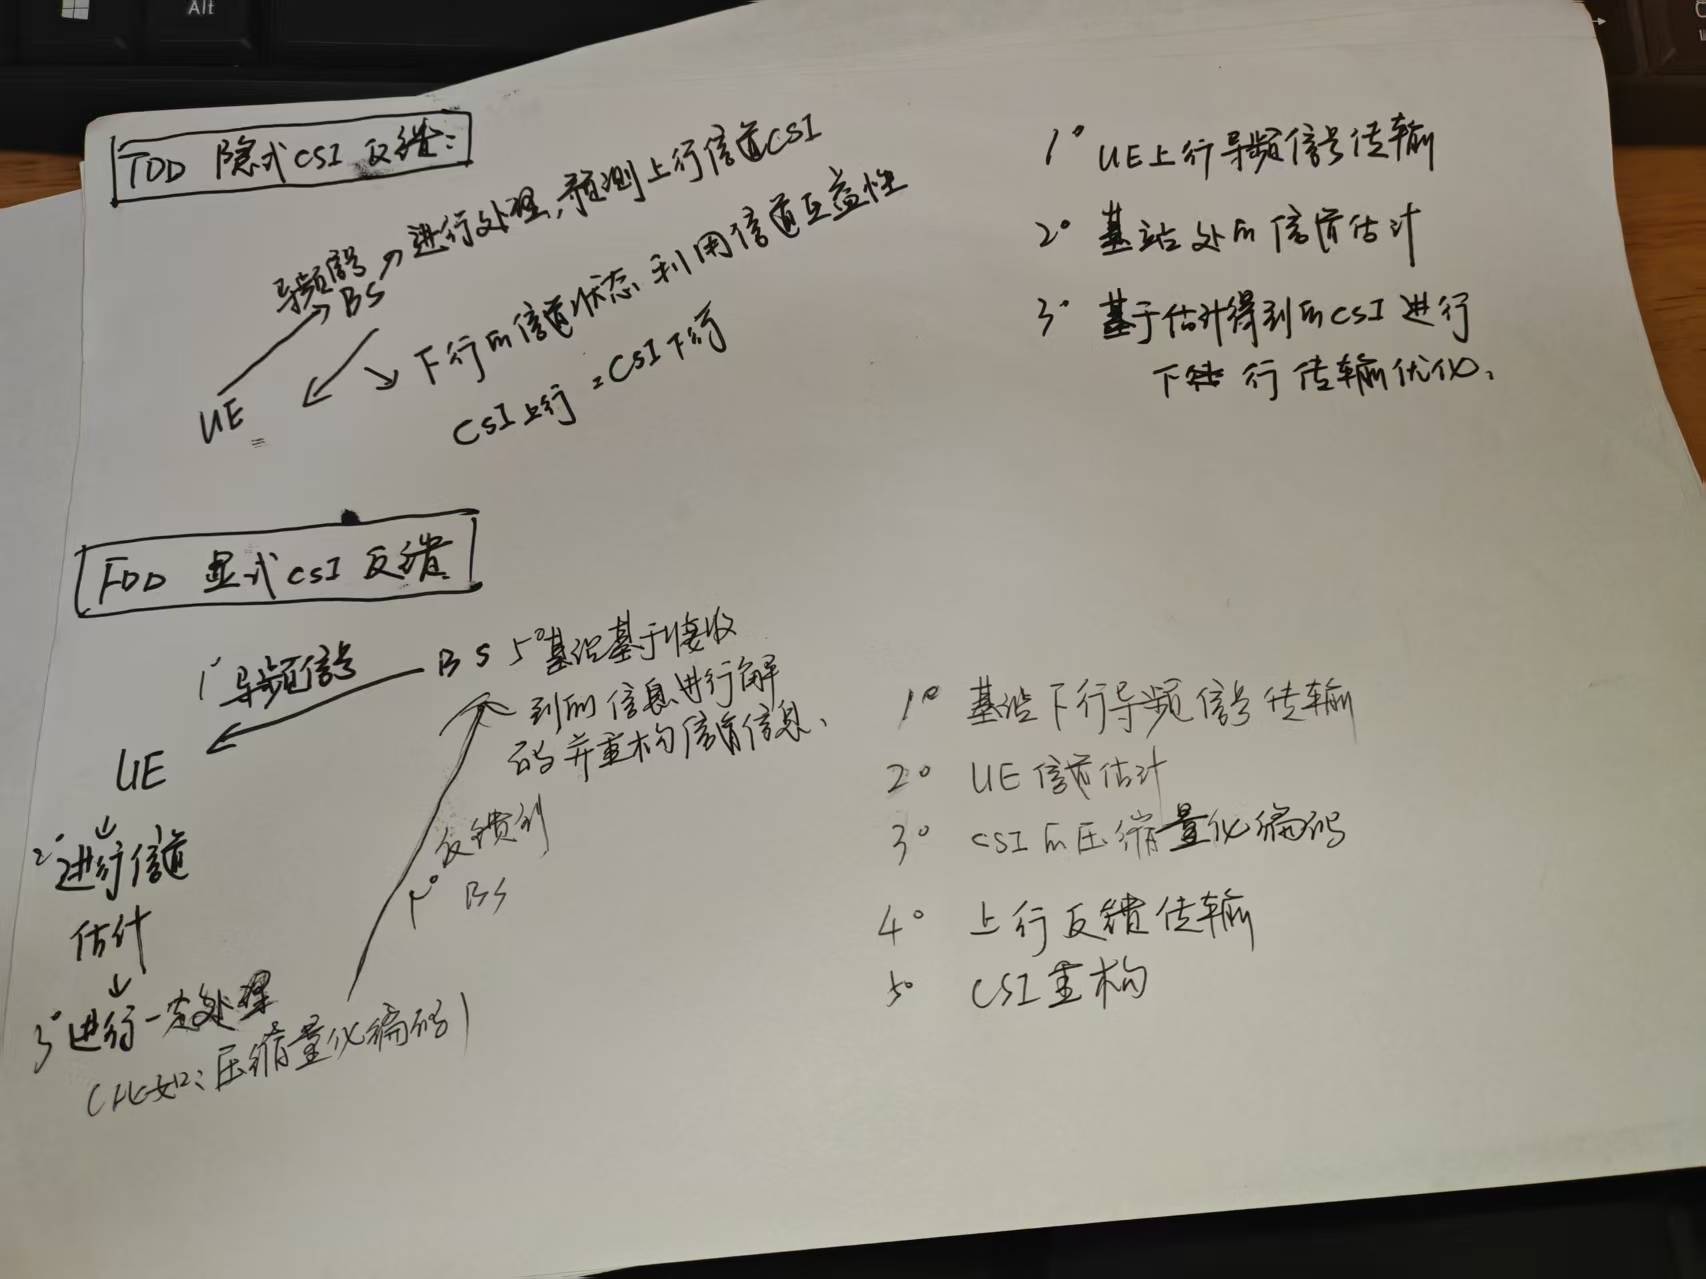 Alt
TDD 隐式CSI反馈:
导频信号
BS
进行处理,预测上行信道CSI
下行的信道状态,利用信道互益性
CSI上行 = CSI下行
UE
1° UE上行导频信号传输
2° 基站处的信道估计
3° 基于估计得到的CSI进行
下行传输优化.
FDD 显式CSI反馈
1° 导频信号
BS
5° 基站基于接收
到的信息进行解
码并重构信道信息.
UE
2° 进行信道
估计
3° 进行一定处理
(比如:压缩量化编码)
4° 反馈到
BS
1° 基站下行导频信号传输
2° UE信道估计
3° CSI的压缩量化编码
4° 上行反馈传输
5° CSI重构